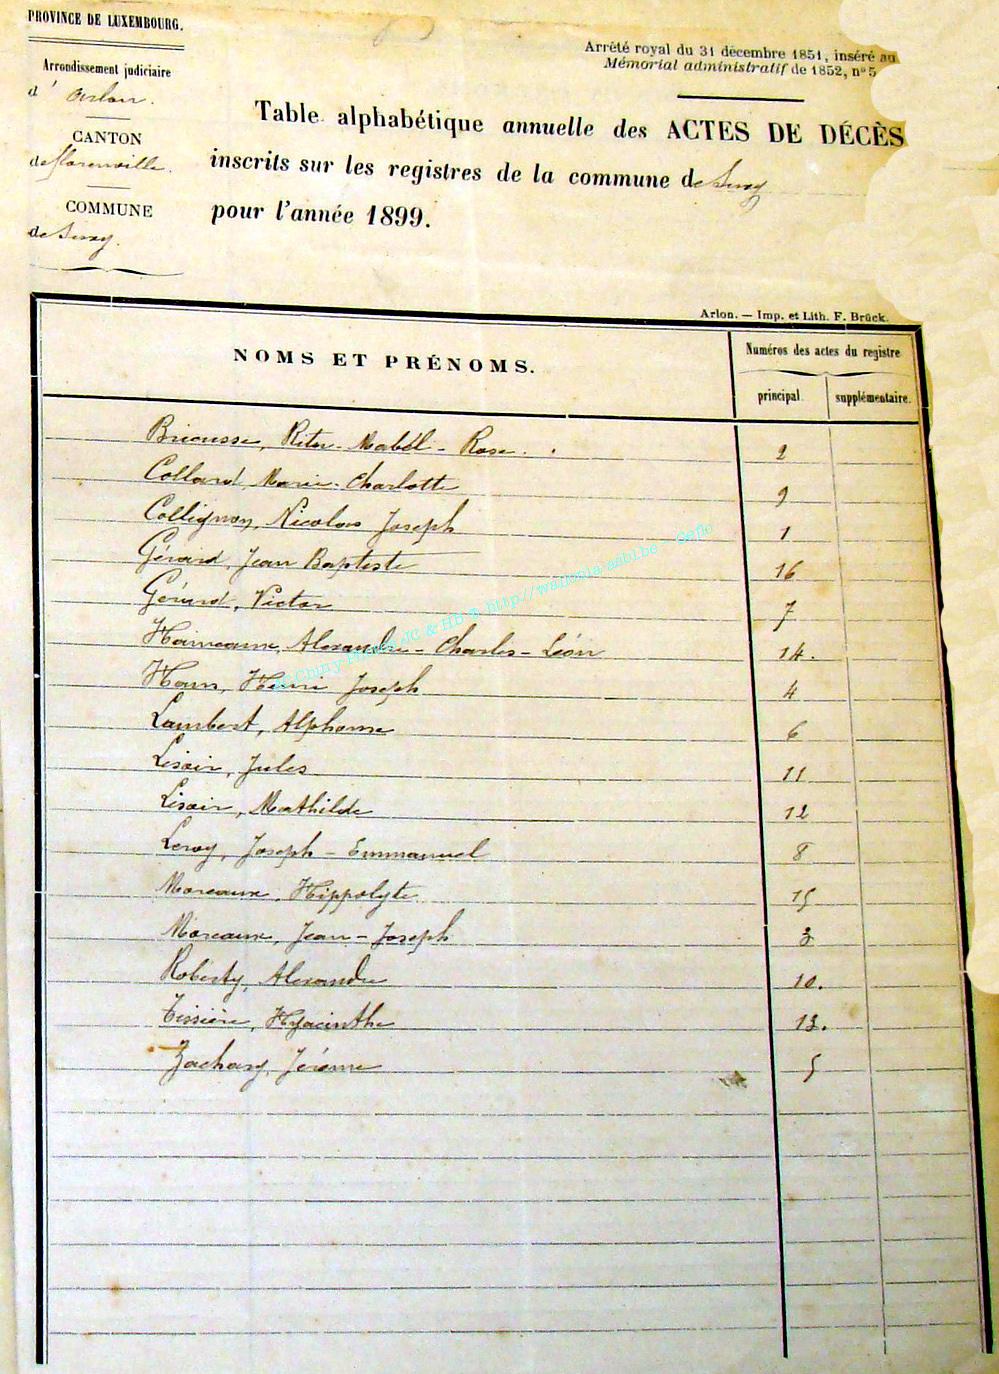 PROVINCE DE LUXEMBOURG.
Arrondissement judiciaire
d'Arlon.
CANTON
de Florenville.
COMMUNE
de
Arrêté royal du 31 décembre 1851, inséré au
Mémorial administratif de 1852, n° 5
Table alphabétique annuelle des ACTES DE DÉCÈS
inscrits sur les registres de la commune de
pour l'année 1899.
Arlon. — Imp. et Lith. F. Brück.
NOMS ET PRÉNOMS.
Numéros des actes du registre
principal. supplémentaire.
Rita-Mabél-Rose. 2
Collard, Marie-Charlotte 9
Collignon, Nicolas Joseph 1
Gérard, Jean Baptiste 16
Gérard, Victor 7
Alexandre-Charles-Léon 14.
Henri Joseph 4
Lambert, Alphonse 6
Lisoir, Jules 11
Lisoir, Mathilde 12
Leroy, Joseph-Emmanuel 8
Moreaux, Hippolyte 15
Moreaux, Jean-Joseph 3
Roberty, Alexandre 10.
Tissière, Hyacinthe 13.
Zachary, Jérôme 5
JC & HB http://wallonia-asbl.be - Geflo